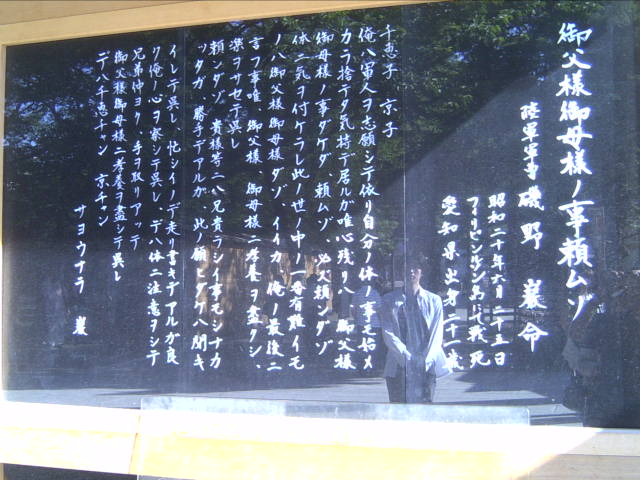 御父様御母様ノ事頼ムゾ
陸軍軍曹 磯野 巌命
昭和二十年六月二十五日
フィリピンルソン島ニて戦死
愛知県出身 二十一歳
千恵子 京子
俺ハ軍人ヲ志願シテ依リ自分ノ体ノ事モ始メ
カラ捨テタ気持デ居ルガ唯心残リハ 御父様
御母様ノ事ダケダ、頼ムゾ、必ズ頼ンダゾ
体ニ気ヲ付ケラレ此ノ世ノ中ノ一番有難イモ
ノハ御父様御母様ダゾ、イイカ、俺ノ最後ニ
言フ事唯 御父様、御母様ニ孝養ヲ盡クシ、
楽ヲサセテ呉レ
頼ンダゾ 貴様等ニハ兄貴ラシイ事モシナカ
ッタガ 勝手デアルガ、此ノ願ヒダケハ聞キ
イレテ呉レ、忙シイノデ走リ書キデアルガ良
ク俺ノ心ヲ察シテ呉レ デハ体ニ注意ヲシテ
兄弟仲ヨク、手ヲ取リアッテ
御父様御母様ニ孝養ヲ盡シテ呉レ
デハ千恵チャン 京チャン
サヨウナラ 巌